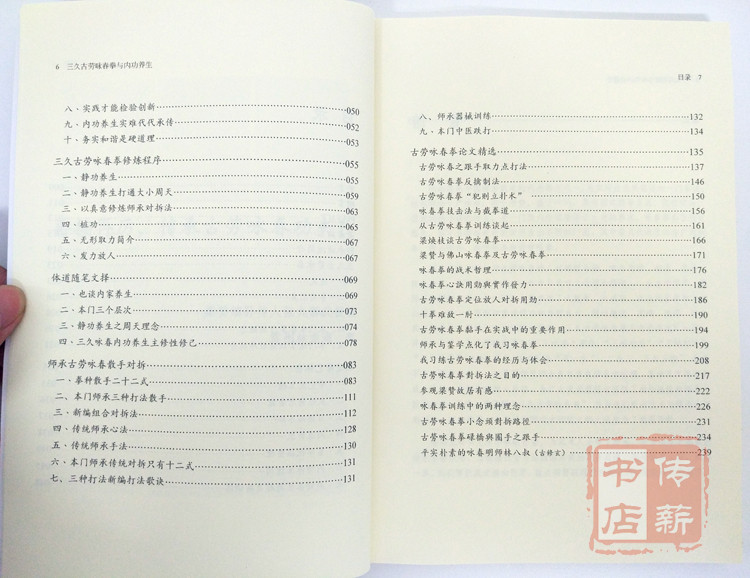 6 三久古劳咏春拳与内功养生
八、实践才能检验创新……050
九、内功养生实难代代承传……052
十、务实和谐是硬道理……053
三久古劳咏春拳修炼程序……055
一、静功养生……055
二、静功养生打通大小周天……055
三、以真意修炼师承对拆法……058
四、桩功……062
五、无形取力简介……066
六、发力放人……067
体道随笔文择……069
一、也谈内家养生……069
二、本门三个层次……073
三、静功养生之周天理念……074
四、三久咏春内功养生主修性修己……078
师承古劳咏春散手对拆……083
一、拳种散手二十二式……083
二、本门师承三种打法散手……111
三、新编组合对拆法……112
四、传统师承心法……128
五、传统师承手法……130
六、本门师承传统对拆只有十二式……131
七、三种打法新编打法歌诀……131
目录 7
八、师承器械训练……132
九、本门中医跌打……134
古劳咏春拳论文精选……135
古劳咏春之跟手取力点打法……137
古劳咏春拳反擒制法……146
古劳咏春拳“犯则立扑术”……150
咏春拳技击法与截拳道……156
从古劳咏春拳训练谈起……161
梁焕枝谈古劳咏春拳……166
梁赞与佛山咏春拳及古劳咏春拳……171
咏春拳的战术哲理……176
咏春拳心訣用勁與實作發力……182
古劳咏春拳定位放人对拆用劲……186
十拳难放一肘……190
古劳咏春拳黏手在实战中的重要作用……194
师承与鉴学点化了我习咏春拳……199
我习练古劳咏春拳的经历与体会……208
古劳咏春拳對拆法之目的……217
参观梁赞故居有感……222
咏春拳训练中的两种理念……226
古劳咏春拳小念頭對拆路徑……231
古劳咏春拳碌橋與圈手之跟手……234
平实朴素的咏春明师林八叔（古修玄）……239
传薪
书店